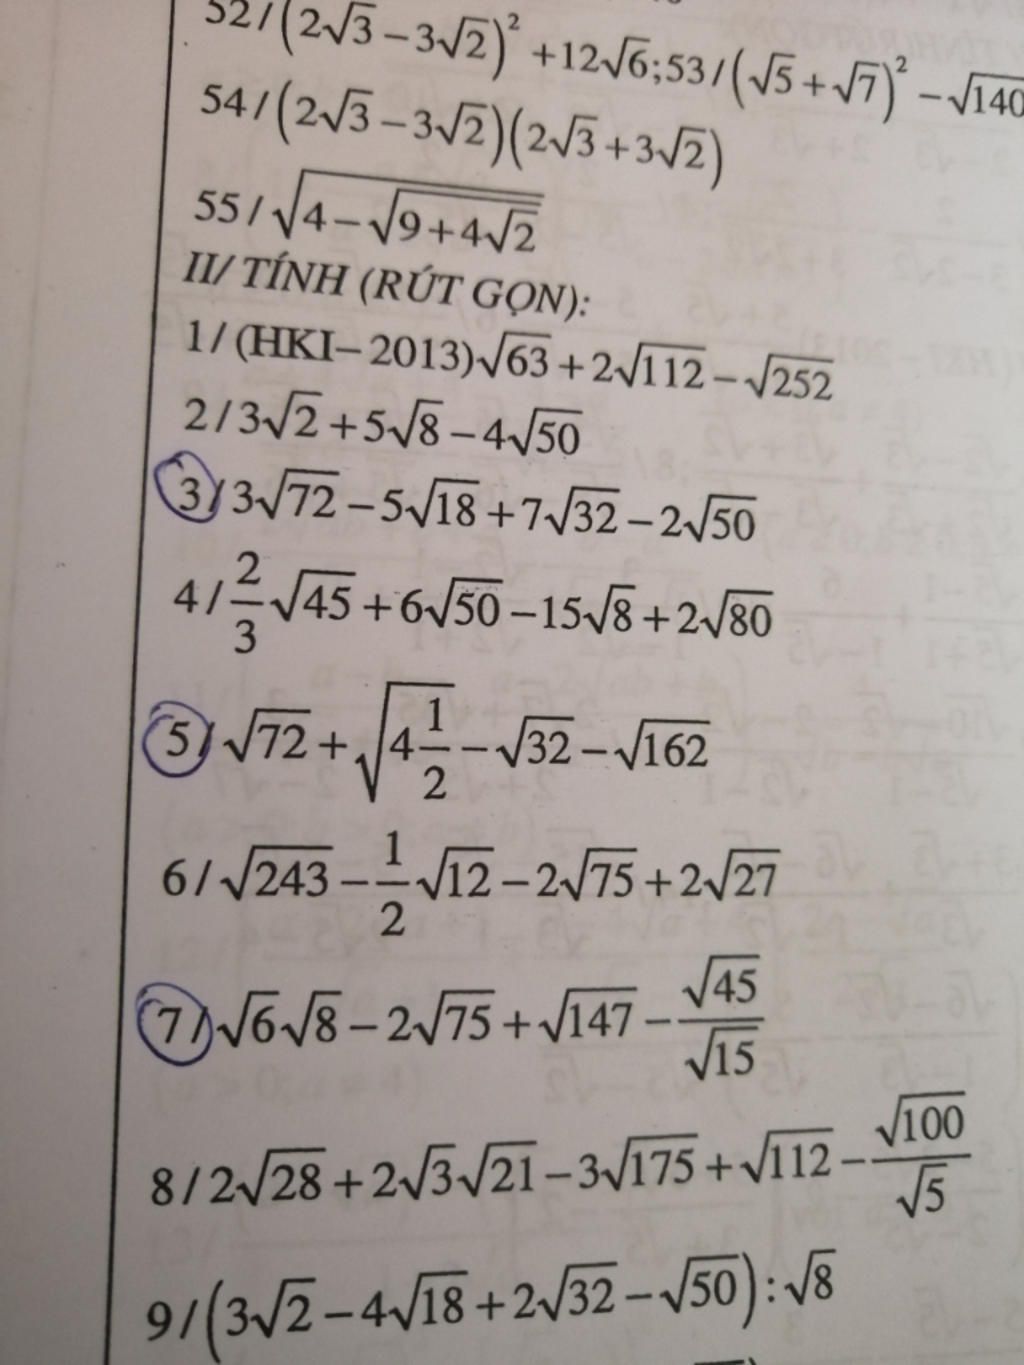 52/(2√3−3√2)²+12√6;53/(√5+√7)²−√140
54/(2√3−3√2)(2√3+3√2)
55/√(4−√(9+4√2))
II/ TÍNH (RÚT GỌN):
1/(HKI−2013)√63+2√112−√252
2/3√2+5√8−4√50
3/3√72−5√18+7√32−2√50
4/(2/3)√45+6√50−15√8+2√80
5/√72+√(4 1/2)−√32−√162
6/√243−(1/2)√12−2√75+2√27
7/√6√8−2√75+√147−√45/√15
8/2√28+2√3√21−3√175+√112−√100/√5
9/(3√2−4√18+2√32−√50):√8